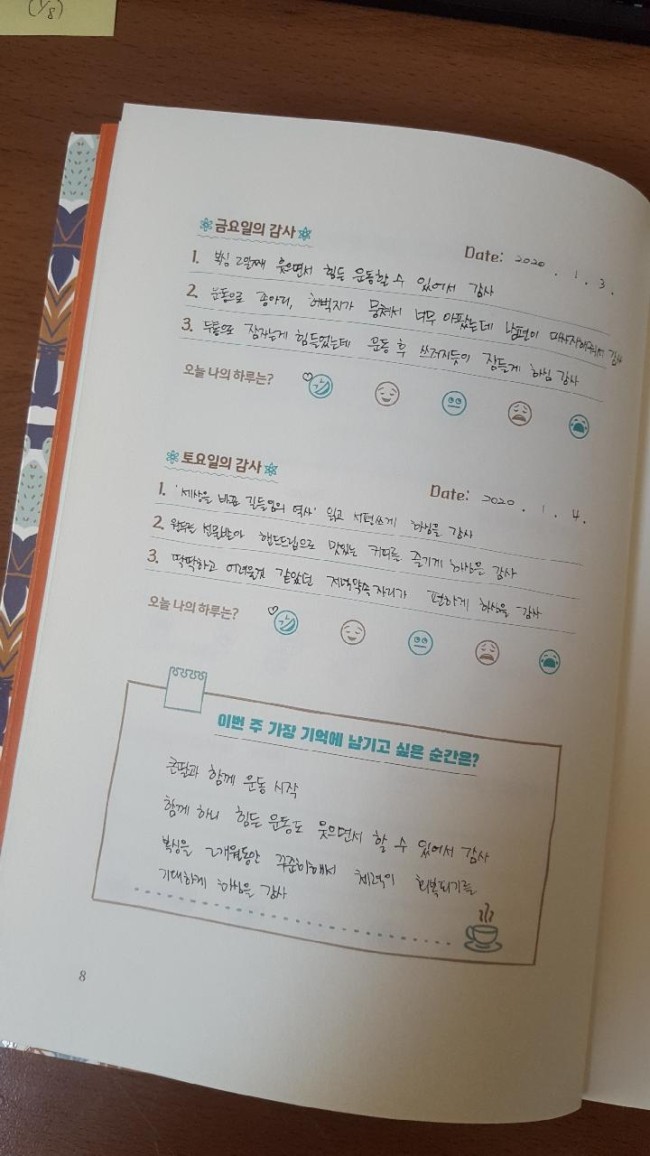 (1/8)
금요일의 감사
Date: 2020 . 1 . 3 .
1. 복싱 2일째 웃으면서 힘든 운동할 수 있어서 감사
2. 운동으로 종아리, 허벅지가 뭉쳐서 너무 아팠는데 남편이 감사
3. 두통으로 잠자는게 힘들었는데 운동 후 쓰러지듯이 잠들게 하심 감사
오늘 나의 하루는?
토요일의 감사
Date: 2020 . 1 . 4 .
1. '세상을 바꾼 길들임의 역사' 읽고 서평쓰게 하심을 감사
2. 원두 선물받아 핸드드립으로 맛있는 커피를 즐기게 하심을 감사
3. 딱딱하고 어려울것 같았던 저녁약속자리가 편하게 하심을 감사
오늘 나의 하루는?
이번 주 가장 기억에 남기고 싶은 순간은?
큰딸과 함께 운동 시작
함께 하니 힘든 운동도 웃으면서 할 수 있어서 감사
복싱을 2개월동안 꾸준히해서 체력이 회복되기를
기대하게 하심을 감사
8